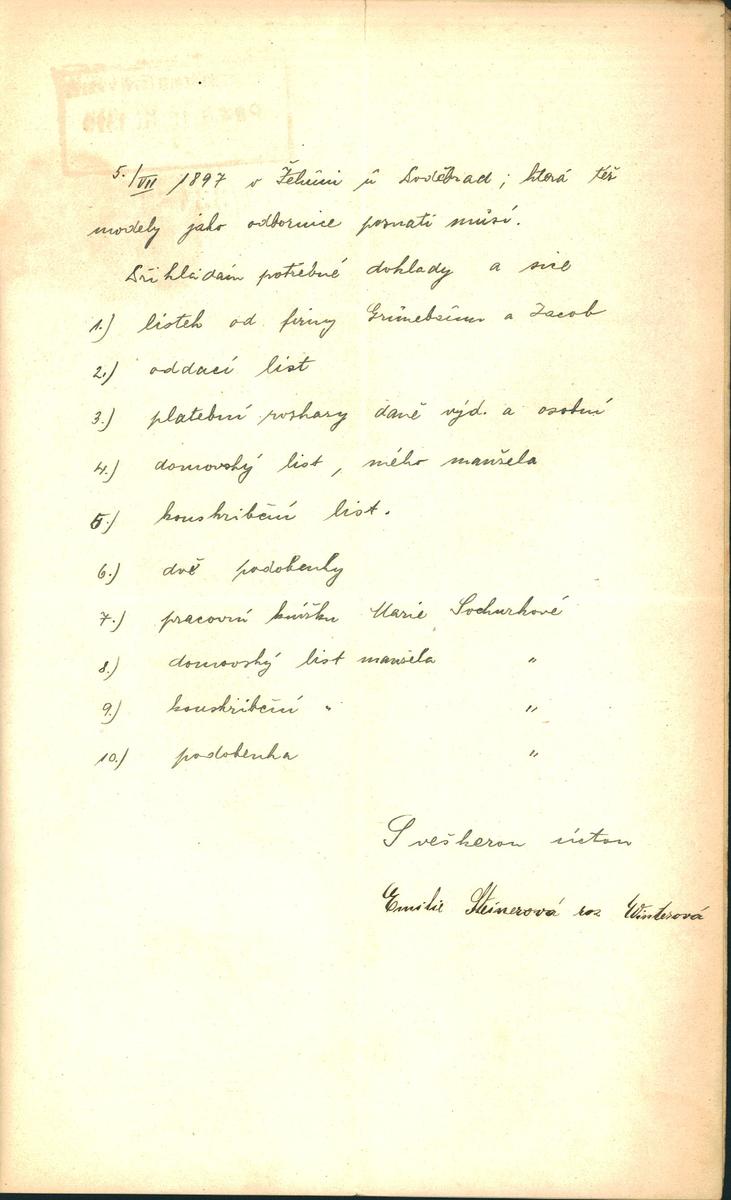 5./VII 1897 v Žehúni ú Poděbrad; která též
modely jako odbornice poznati músí.
Přikládám potřebné doklady a sice
1.) lístek od firmy a Jacob
2.) oddací list
3.) platební rozkazy daně výd. a osobní
4.) domovský list, mého manžela
5.) konskribční list.
6.) dvě podobenky
7.) pracovní knížku Marie Sochurkové
8.) domovský list manžela "
9.) konskribční " "
10.) podobenka "
S veškerou úctou
Emilie Steinerová roz Winterová